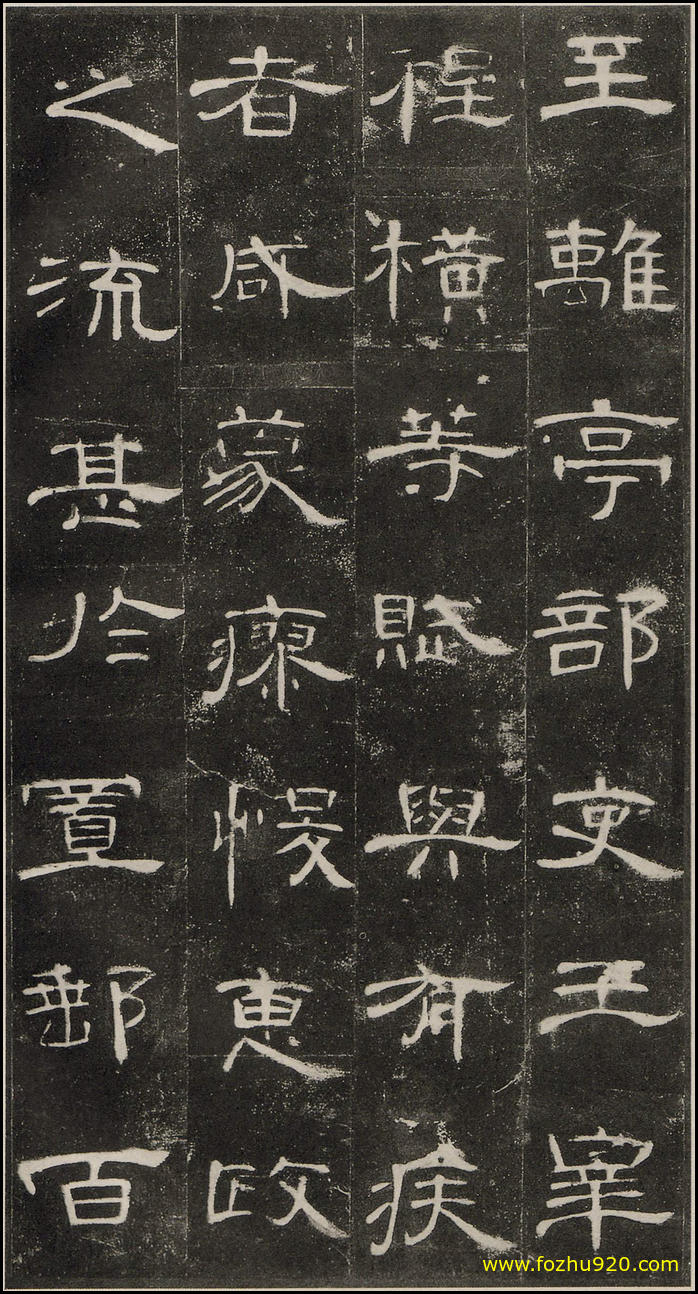 至離亭部吏王睪
程橫等賦與有疾
者咸蒙瘳悛惠政
之流甚於置郵百
www.fozhu920.com